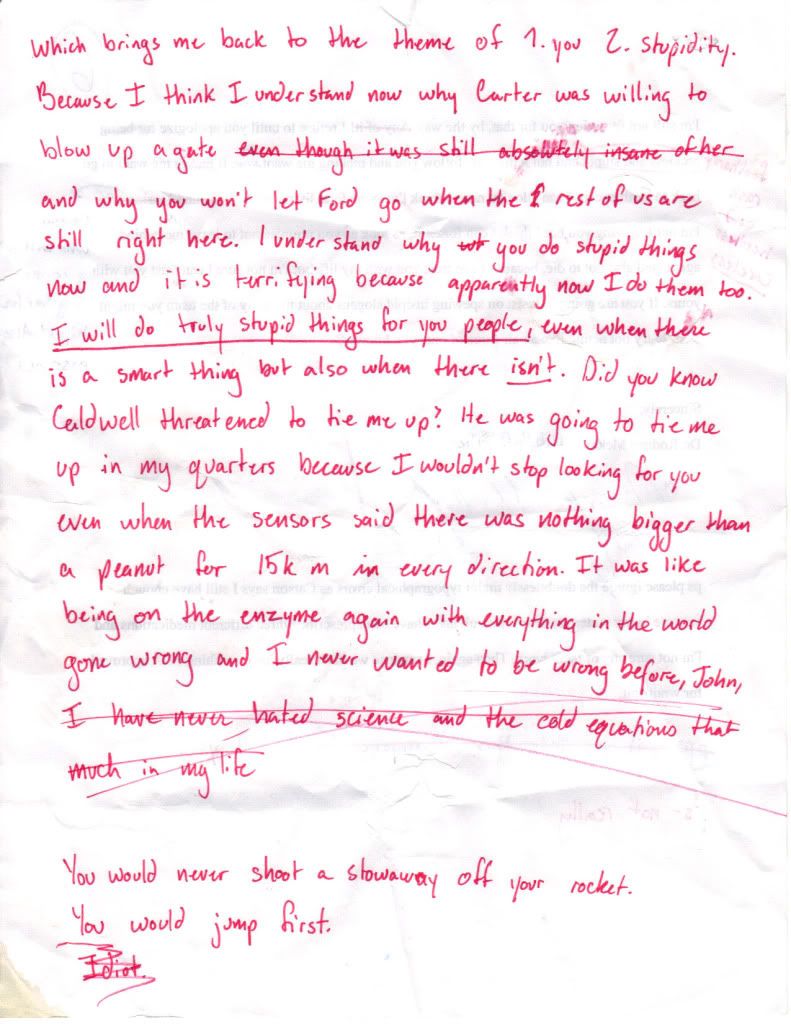 Which brings me back to the theme of 1. you 2. stupidity.
Because I think I understand now why Carter was willing to
blow up a gate even though it was still absolutely insane of her
and why you won't let Ford go when the rest of us are
still right here. I understand why you do stupid things
now and it is terrifying because apparently now I do them too.
I will do truly stupid things for you people, even when there
is a smart thing but also when there isn't. Did you know
Caldwell threatened to tie me up? He was going to tie me
up in my quarters because I wouldn't stop looking for you
even when the sensors said there was nothing bigger than
a peanut for 15k m in every direction. It was like
being on the enzyme again with everything in the world
gone wrong and I never wanted to be wrong before, John,
I have never hated science and the cold equations that
much in my life
You would never shoot a stowaway off your rocket.
You would jump first.
Idiot.